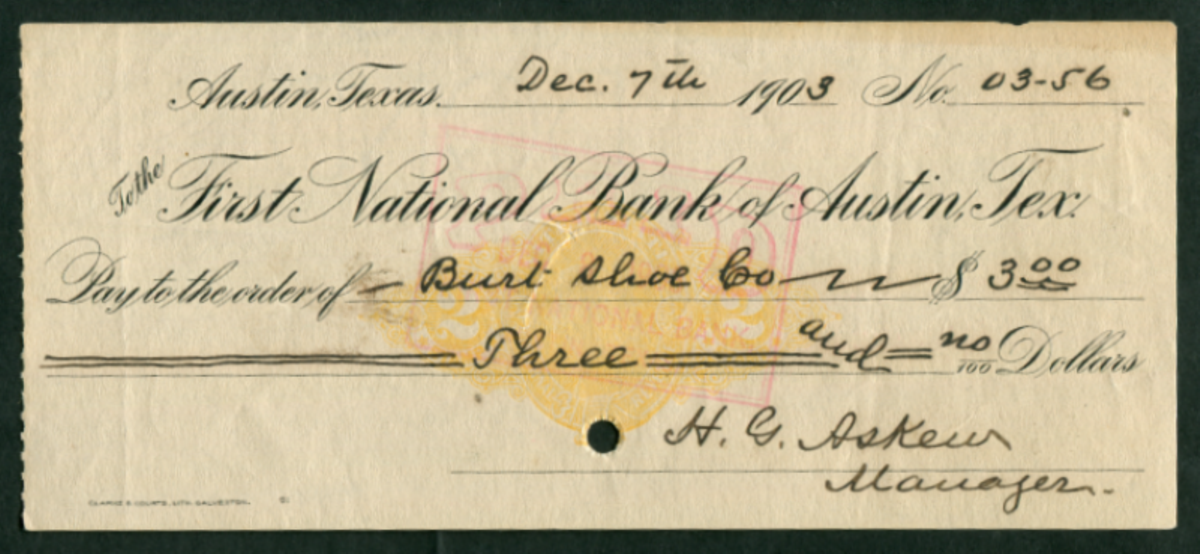 Austin, Texas. Dec. 7th 1903 No. 03-56
To the First National Bank of Austin, Tex.
Pay to the order of Burt Shoe Co $ 3 00
Three and no/100 Dollars
H. G. Askew
Manager.
2 2
NATIONAL BANK
DEC